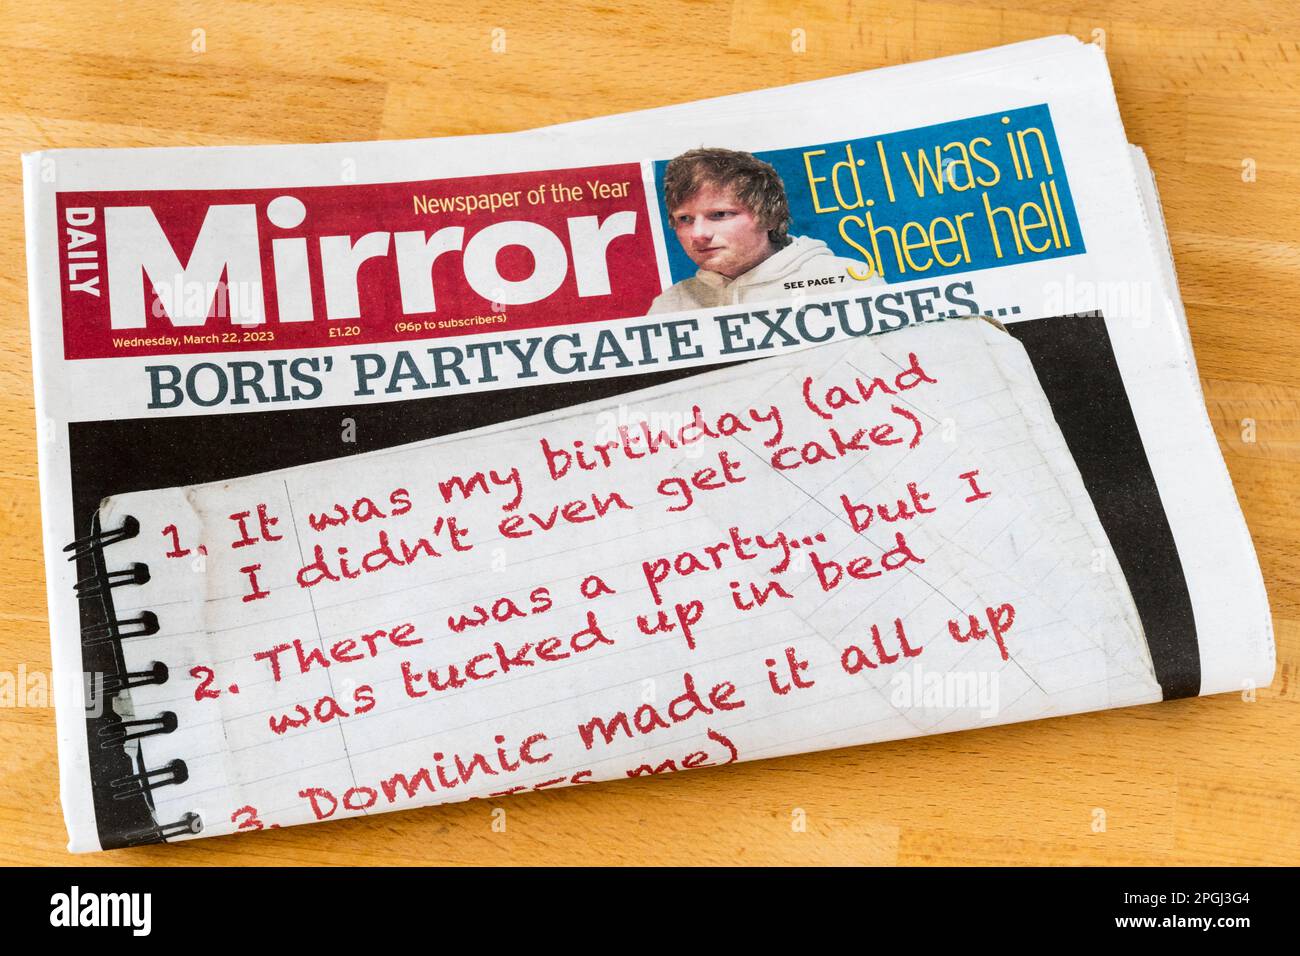 DAILY
Mirror
Newspaper of the Year
Wednesday, March 22, 2023 £1.20 (96p to subscribers)
Ed: I was in
Sheer hell
SEE PAGE 7
BORIS' PARTYGATE EXCUSES...
1. It was my birthday (and
I didn't even get cake)
2. There was a party... but I
was tucked up in bed
3. Dominic made it all up
me)
alamy
Image ID: 2PGJ3G4
www.alamy.com